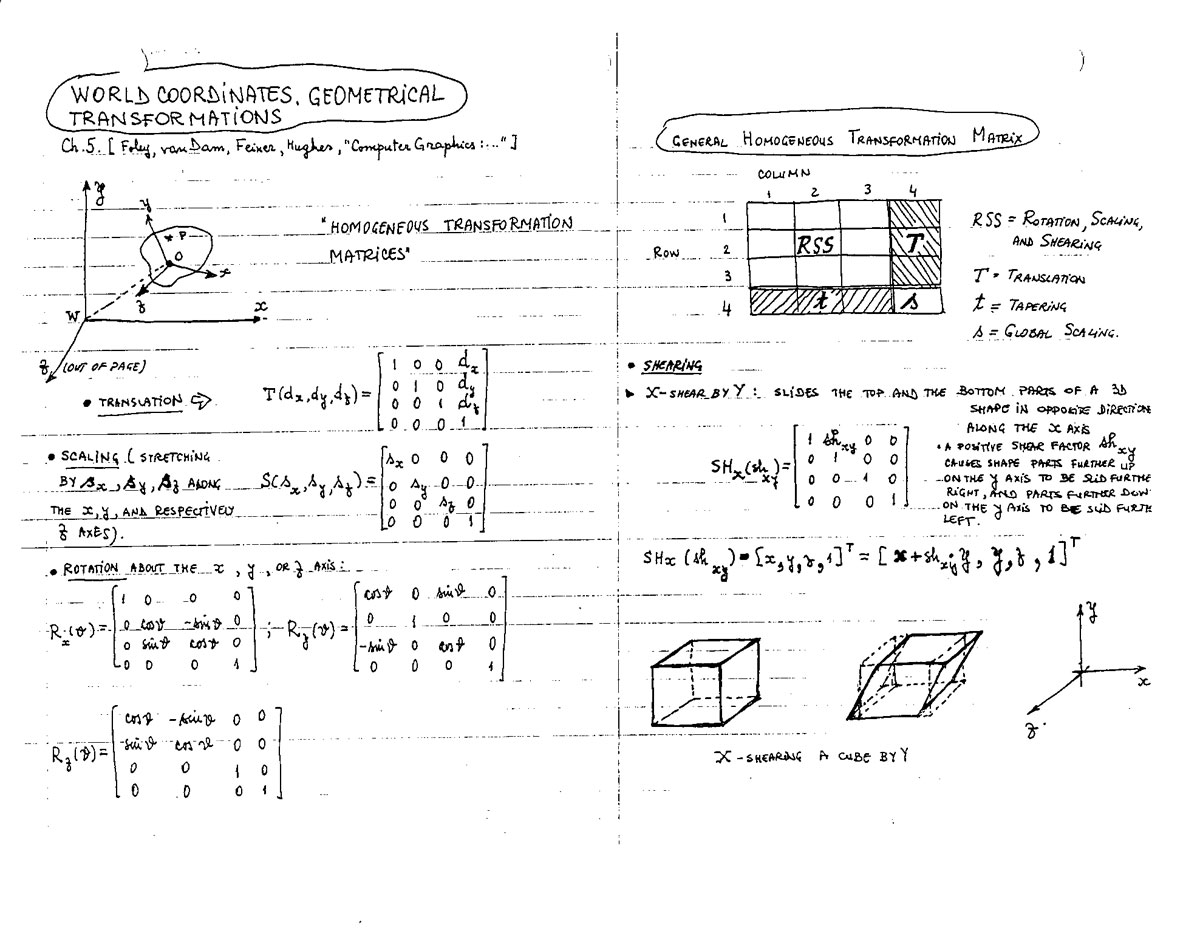 WORLD COORDINATES, GEOMETRICAL
TRANSFORMATIONS
Ch.5. [ Foley, van Dam, Feiner, Hughes, "Computer Graphics:..." ]
y
y
P
O
x
z
W
x
z (OUT OF PAGE)
"HOMOGENEOUS TRANSFORMATION
MATRICES"
• TRANSLATION ⇨ T(dx,dy,dz)=
1 0 0 dx
0 1 0 dy
0 0 1 dz
0 0 0 1
• SCALING ( STRETCHING
BY sx, sy, sz ALONG S(sx,sy,sz)=
THE x,y, AND RESPECTIVELY
z AXES).
sx 0 0 0
0 sy 0 0
0 0 sz 0
0 0 0 1
• ROTATION ABOUT THE x, y, OR z AXIS:
Rx(ϑ)=
1 0 0 0
0 cosϑ -sinϑ 0
0 sinϑ cosϑ 0
0 0 0 1
; Rz(ϑ)=
cosϑ 0 sinϑ 0
0 1 0 0
-sinϑ 0 cosϑ 0
0 0 0 1
Rz(ϑ)=
cosϑ -sinϑ 0 0
sinϑ cosϑ 0 0
0 0 1 0
0 0 0 1
GENERAL HOMOGENEOUS TRANSFORMATION MATRIX
COLUMN
1 2 3 4
1
ROW 2 RSS T
3
4 t s
RSS = ROTATION, SCALING,
AND SHEARING
T = TRANSLATION
t = TAPERING
s = GLOBAL SCALING.
• SHEARING
▸ X-SHEAR BY Y: SLIDES THE TOP AND THE BOTTOM PARTS OF A 3D
SHAPE IN OPPOSITE DIRECTION
ALONG THE x AXIS
• A POSITIVE SHEAR FACTOR shxy
CAUSES SHAPE PARTS FURTHER UP
ON THE y AXIS TO BE SLID FURTHE
RIGHT, AND PARTS FURTHER DOW
ON THE y AXIS TO BE SLID FURTH
LEFT.
SHx(shxy)=
1 shxy 0 0
0 1 0 0
0 0 1 0
0 0 0 1
SHx(shxy)•[x,y,z,1]ᵀ = [x+shxyy, y, z, 1]ᵀ
y
x
z
X-SHEARING A CUBE BY Y